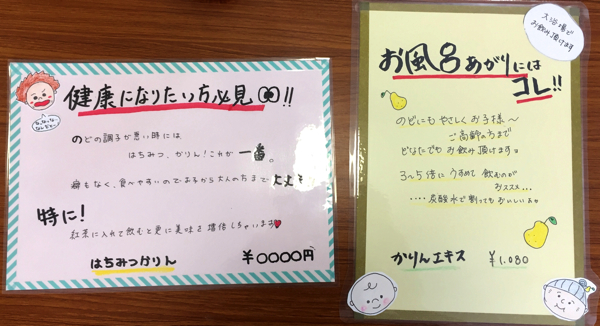 健康になりたい方必見!!
なっ、なっ、なんじゃー
のどの調子が悪い時には
はちみつ、かりん!これが一番。
癖もなく、食べやすいのでお子から大人の方まで大丈夫
特に!
紅茶に入れて飲むと更に美味さ倍増しちゃいます♥
はちみつかりん ¥0000円
入浴場で
お飲み頂けます
お風呂あがりには
コレ!!
のどにもやさしくお子様〜
ご高齢の方まで
どなたでもお飲み頂けます。
3〜5倍にうすめて飲むのが
おススメ...
....炭酸水で割ってもおいしいョ
かりんエキス ¥1.080